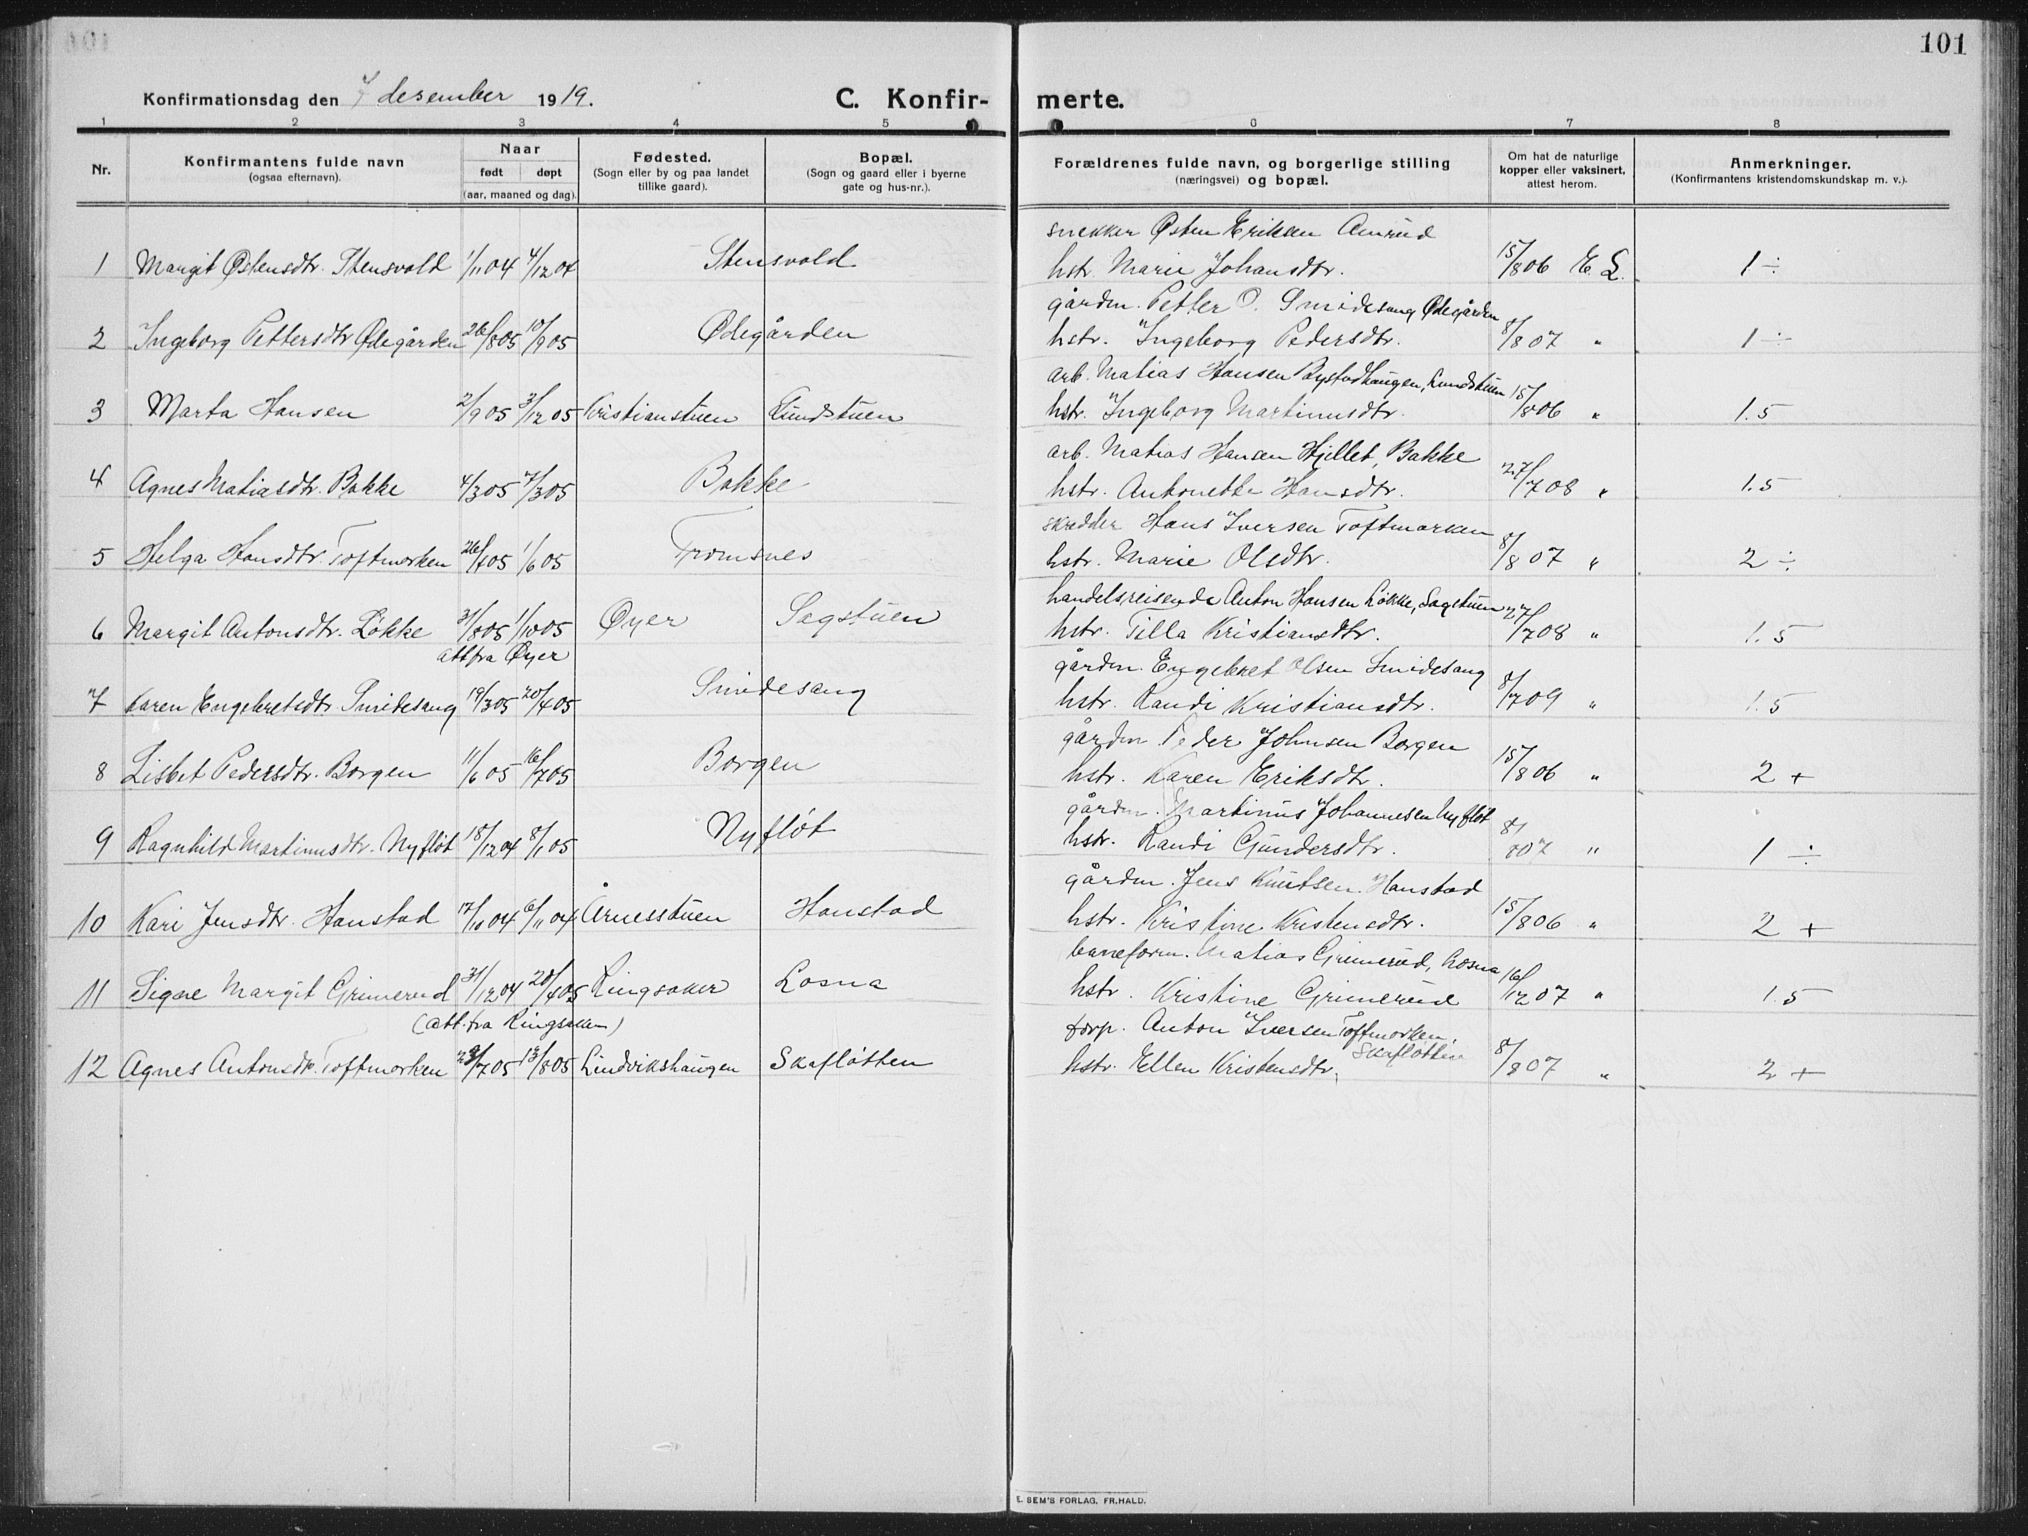 101
Konfirmationsdag den 7 desember 1919. C. Konfir- merte.
1 2 3 4 5 6 7 8
Nr. Konfirmantens fulde navn (ogsaa efternavn). Naar født døpt (aar, maaned og dag). Fødested. (Sogn eller by og paa landet tillike gaard). Bopæl. (Sogn og gaard eller i byerne gate og hus-nr.). Forældrenes fulde navn, og borgerlige stilling (næringsvei) og bopæl. Om hat de naturlige kopper eller vaksinert, attest herom. Anmerkninger. (Konfirmantens kristendomskundskap m. v.).
snekker Østen Eriksen Amrud
1 Margit Østensdtr. Stensvold 1/11 04 4/12 04 Stensvold hstr. Marie Johansdtr. 15/8 06 E. L. 1 ÷
gårdm. Petter O. Smidesang Ødegården
2 Ingeborg Pettersdtr Ødegården 26/8 05 10/9 05 Ødegården hstr. Ingeborg Pedersdtr. 8/8 07 " 1 ÷
arb. Matias Hansen Rystadhaugen, Lundstuen
3 Marta Hansen 2/9 05 3/12 05 Kristianstuen Lundstuen hstr. Ingeborg Martinusdtr. 15/8 06 " 1.5
arb. Matias Hansen Hjillet, Bakke
4 Agnes Matiasdtr. Bakke 4/3 05 7/3 05 Bakke hstr. Antonette Hansdtr. 27/7 08 " 1.5
skrædder Hans Iversen Toftmorken
5 Helga Hansdtr. Toftmorken 26/4 05 1/6 05 Tromsnes hstr. Marie Olsdtr. 8/8 07 " 2 ÷
handelsreisende Anton Hansen Løkke, Sagstuen
6 Margit Antonsdtr. Løkke 31/8 05 1/10 05 Øyer Sagstuen hstr. Tilla Kristiansdtr. 27/7 08 " 1.5
att fra Øyer
gårdm. Engebret Olsen Smidesang
7 Karen Engebretsdtr. Smidesang 19/3 05 20/4 05 Smidesang hstr. Randi Kristiansdtr. 8/7 09 " 1.5
gårdm. Peder Johnsen Borgen
8 Lisbet Pedersdtr. Borgen 11/6 05 16/7 05 Borgen hstr. Karen Eriksdtr. 15/8 06 " 2 +
gårdm. Martinus Johannesen Nyfløt
9 Ragnhild Martinusdtr. Nyfløt 18/12 04 8/1 05 Nyfløt hstr. Randi Gundersdtr. 8/8 07 " 1 ÷
gårdm. Jens Knutsen Hanstad
10 Kari Jensdtr. Hanstad 17/10 04 6/11 04 Årnesstuen Hanstad hstr. Kristine Kristensdtr. 15/8 06 " 2 +
baneform. Matias Grimerud, Losna
11 Signe Margit Grimerud 31/12 04 20/4 05 Ringsaker Losna hstr. Kristine Grimerud 16/12 07 " 1.5
(att. fra Ringsaker)
forp. Anton Iversen Toftmorken,
Skafløtten
12 Agnes Antonsdtr. Toftmorken 23/7 05 13/8 05 Lindvikshaugen Skafløtten hstr. Ellen Kristensdtr, 8/8 07 " 2 +
E. SEM'S FORLAG, FR.HALD.